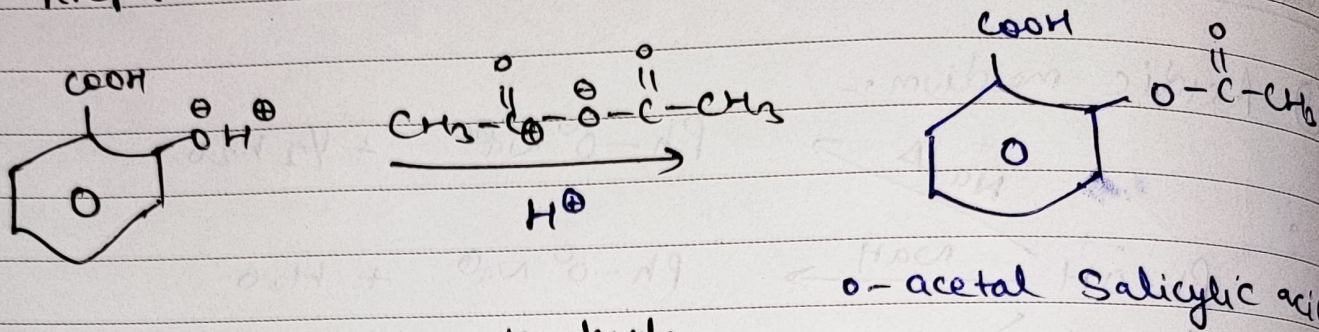 COOH
O⊖ H⊕
O
CH3-C⊕(=O)-O⊖-C(=O)-CH3
H⊕
COOH
O-C(=O)-CH3
O
o- acetal Salicylic aci